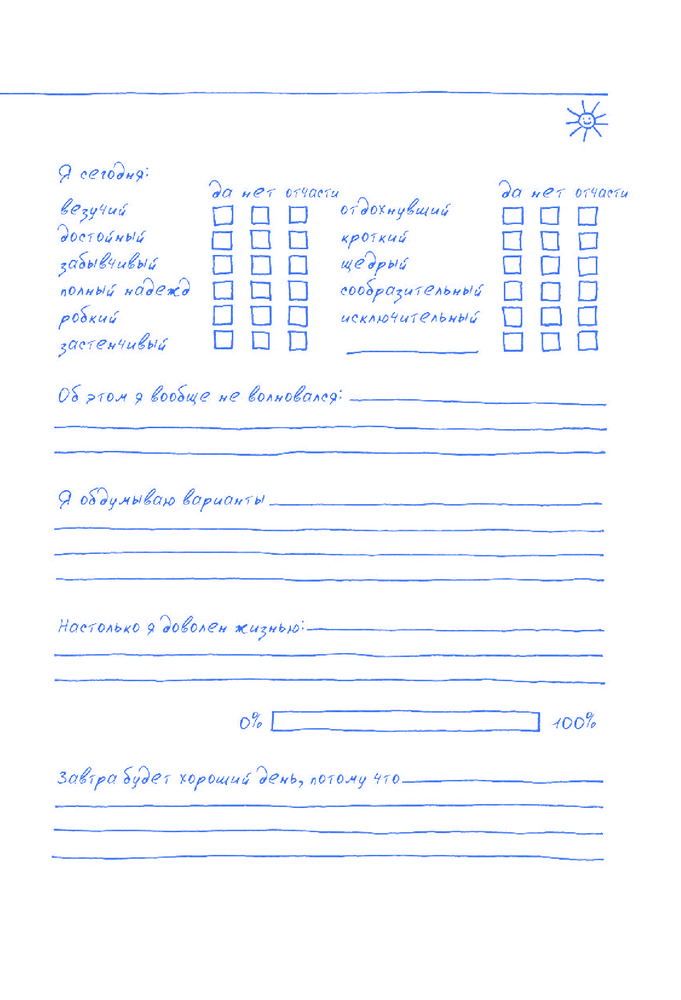 Я сегодня:
да нет отчасти да нет отчасти
везучий отдохнувший
достойный кроткий
забывчивый щедрый
полный надежд сообразительный
робкий исключительный
застенчивый
Об этом я вообще не волновался:
Я обдумываю варианты
Настолько я доволен жизнью:
0% 100%
Завтра будет хороший день, потому что